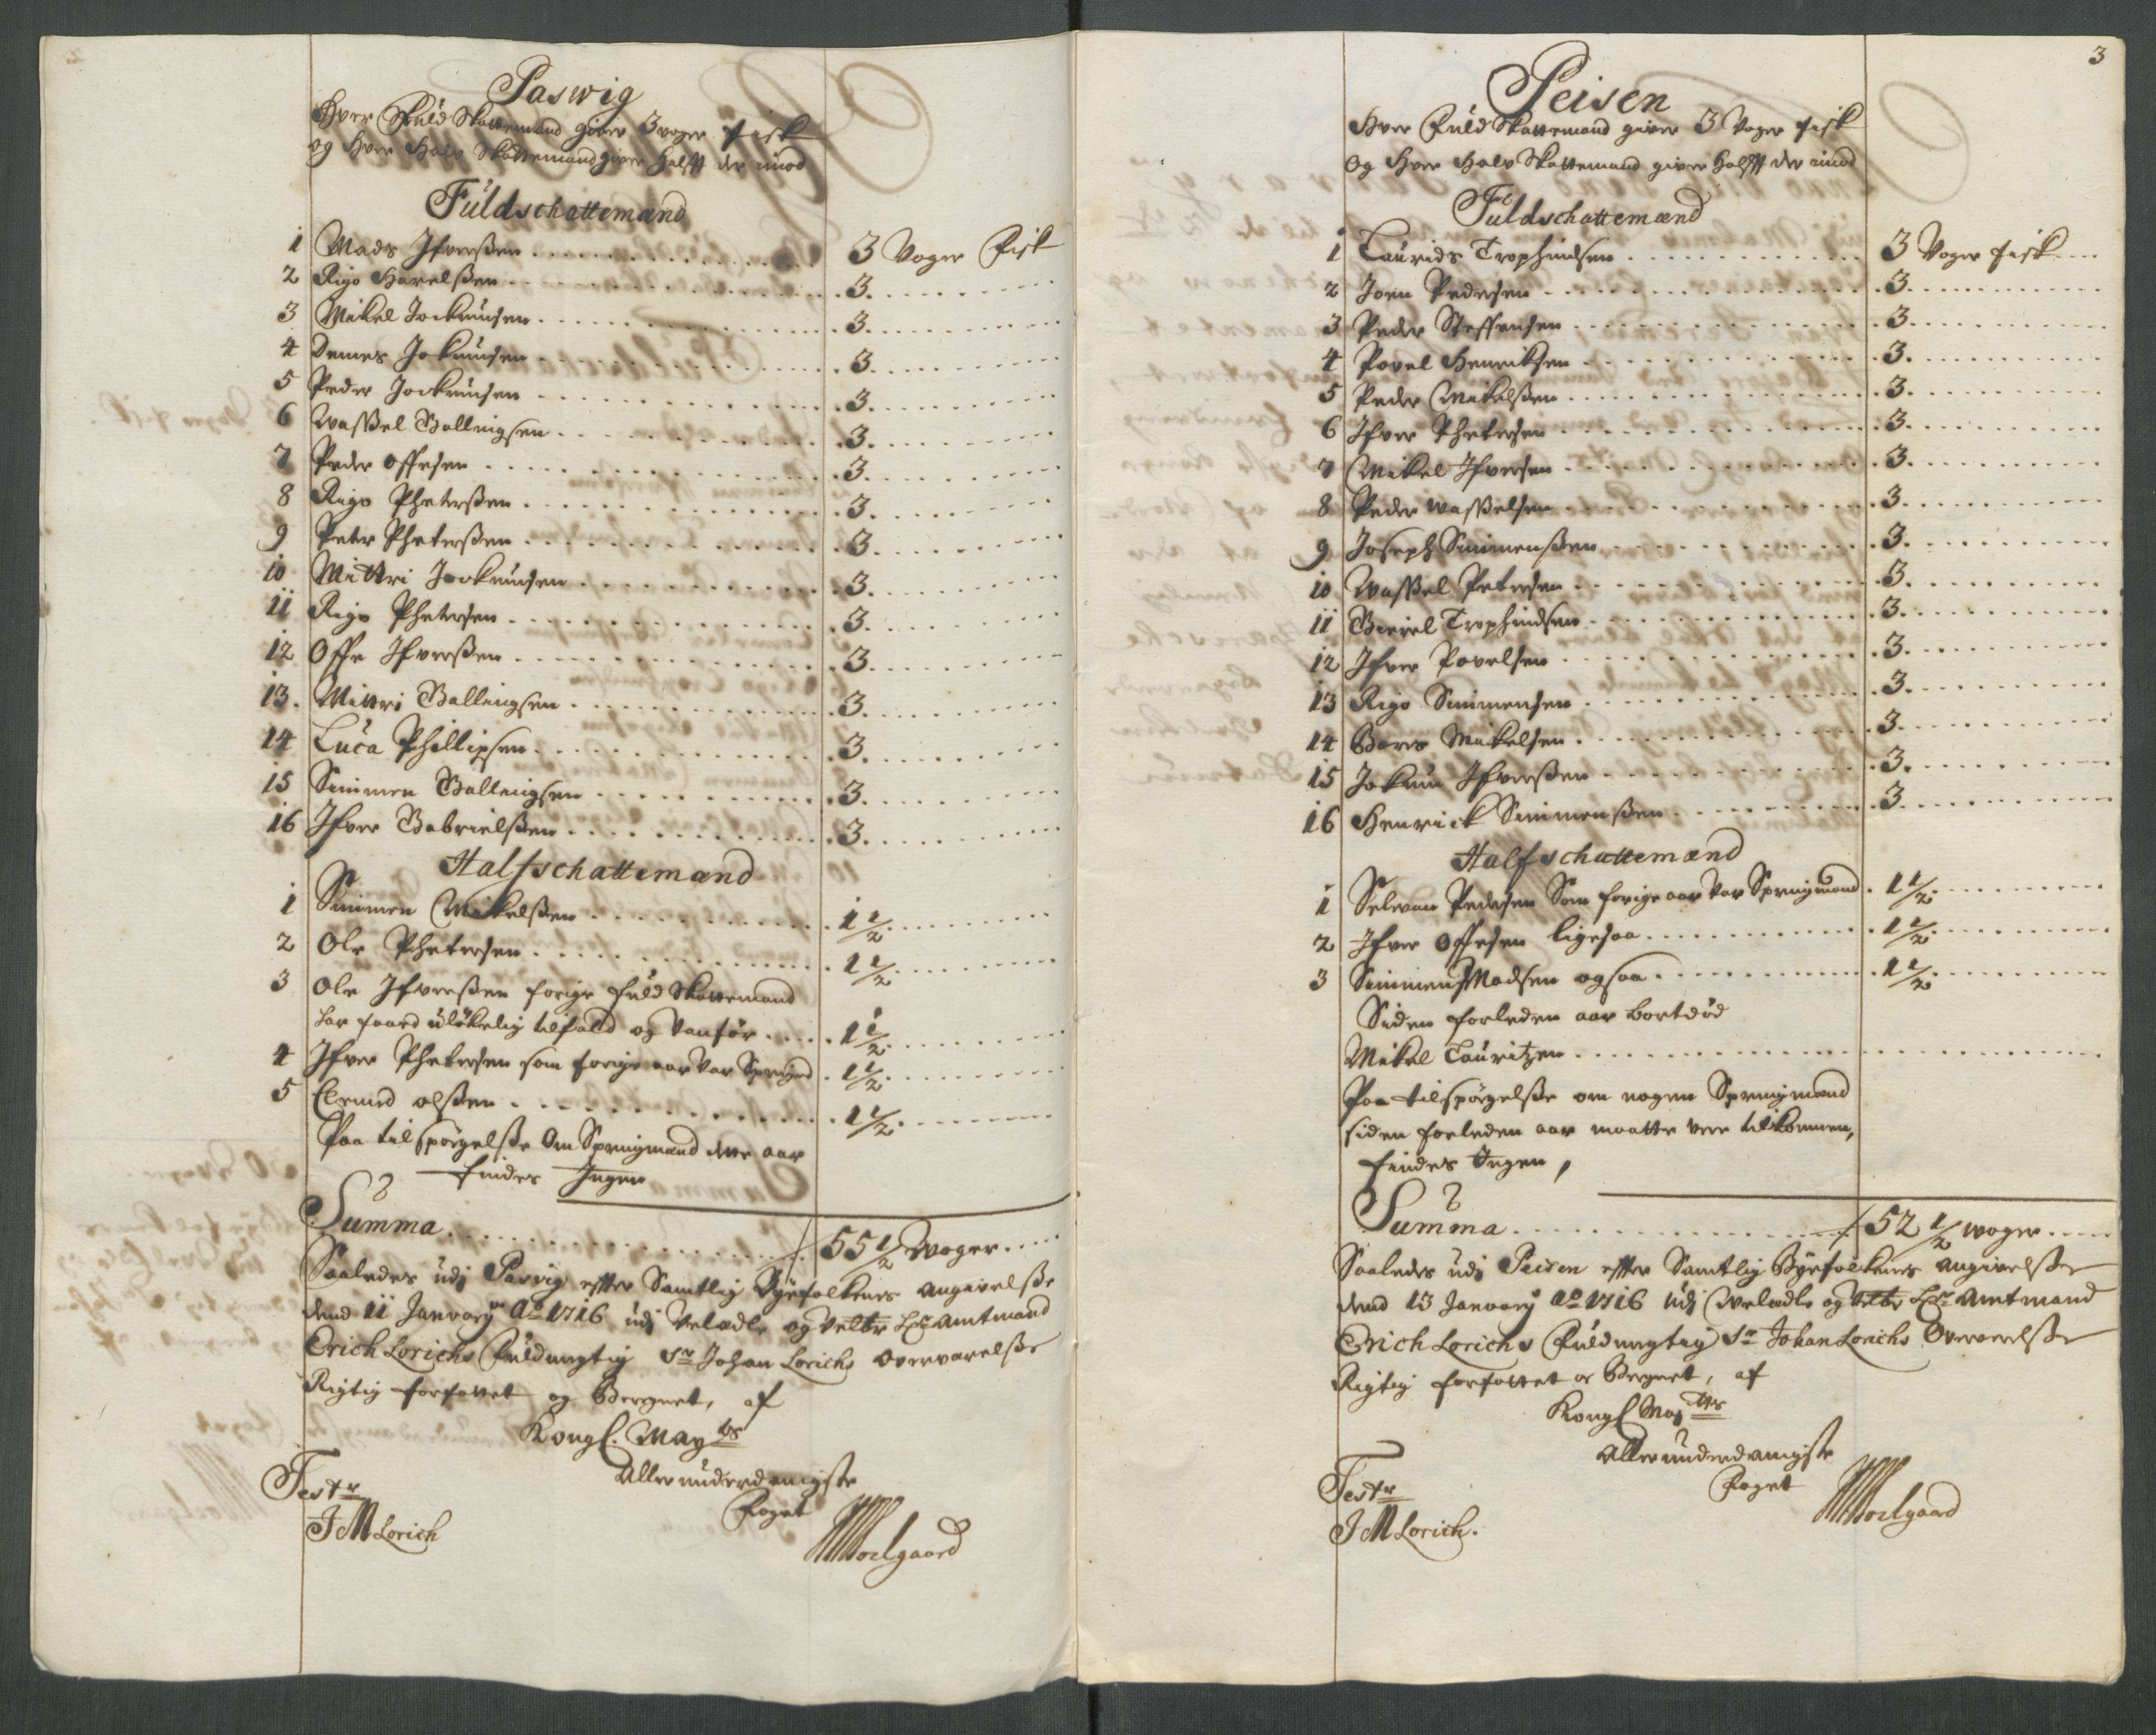 Paswig
Hver Fuld Skattemand giver 3 voger fisk
og Hver Halv Skattemand giver halfft der imod
Fuldschattemænd
1 Mads Ifverßen 3 Voger Fisk
2 Rigo Havelßen 3
3 Mikel Jockumsen 3
4 Demes Jokumsen 3
5 Peder Jockumsen 3
6 Waßel Gallingsen 3
7 Peder Offesen 3
8 Rigo Pheterßen 3
9 Peter Pheterßen 3
10 Mittri Jockumsen 3
11 Rigo Phetersen 3
12 Offe Ifverßen 3
13. Mittri Gallingsen 3
14 Luca Phillipsen 3
15 Simmen Gallingsen 3
16 Ifver Gabrielßen 3
Halfschattemænd
1 Simmen Mikelßen 1 1/2
2 Ole Phetersen 1 1/2
3 Ole Ifverßen forige fuld Skattemand
har faaed ulökelig tilfald og Vanför 1 1/2
4 Ifver Phetersen som forige aar var 1 1/2
5 olßen 1 1/2
Paa tilspörgelße Om Springmænd dette aar
findes Ingen
Summa 55 1/2 Woger
Saaledes udj Pasvig effter Samtlig Byefolkenes angivelße
dend 11 January Ao 1716 udj Velædle og Velbr Hr Amtmand
Erich Lorichs Fuldmegtig Sr Johan Lorichs Overværelße
Rigtig forfattet og Beregnet, af
Kongl. Mayts
Allerunderdanigste
Foget
Teste
J M Lorich
Soelgaard
3
Peisen
Hver Fuld Skattemand giver 3 Voger fisk
Og Hver Halv Skattemand giver Halfft der imod
Fuldschattemænd
1 Laurids Trophindsen 3 Voger fisk
2 Joen Pedersen 3
3 Peder Steffensen 3
4 Povel Henriksen 3
5 Peder Mikelßen 3
6 Ifver Phetersen 3
7 Mikel Ifversen 3
8 Peder Waßelsen 3
9 Joseph Simmenßen 3
10 Waßel Petersen 3
11 Trophindsen 3
12 Ifver Povelsen 3
13 Rigo Simmensen 3
14 Boris Mikelsen 3
15 Jokum Ifverßen 3
16 Henrick Simmenßen 3
Halfschattemænd
1 Selvan Pedersen Som forige aar var Springmand 1 1/2
2 Ifver Offesen ligesaa 1 1/2
3 Simmen Madsen ogsaa 1 1/2
Siden forleden aar bortdöd
Mikel Lauritzen
Paa tilspörgelße om nogen Springmænd
siden forleden aar maatte vere tilkommen,
findes Ingen,
Summa 52 1/2 woger
Saaledes udj Peisen effter Samtlig Byefolkenes angivelße
dend 13 January Ao 1716 udj Velædle og Velbr Hr Amtmand
Erich Lorichs Fuldmegtig Sr Johan Lorichs Oververelße
Rigtig forfattet oc Beregnet, af
Kongl Mayts
Allerunderdanigste
Foget
Teste
J M Lorich.
Soelgaard